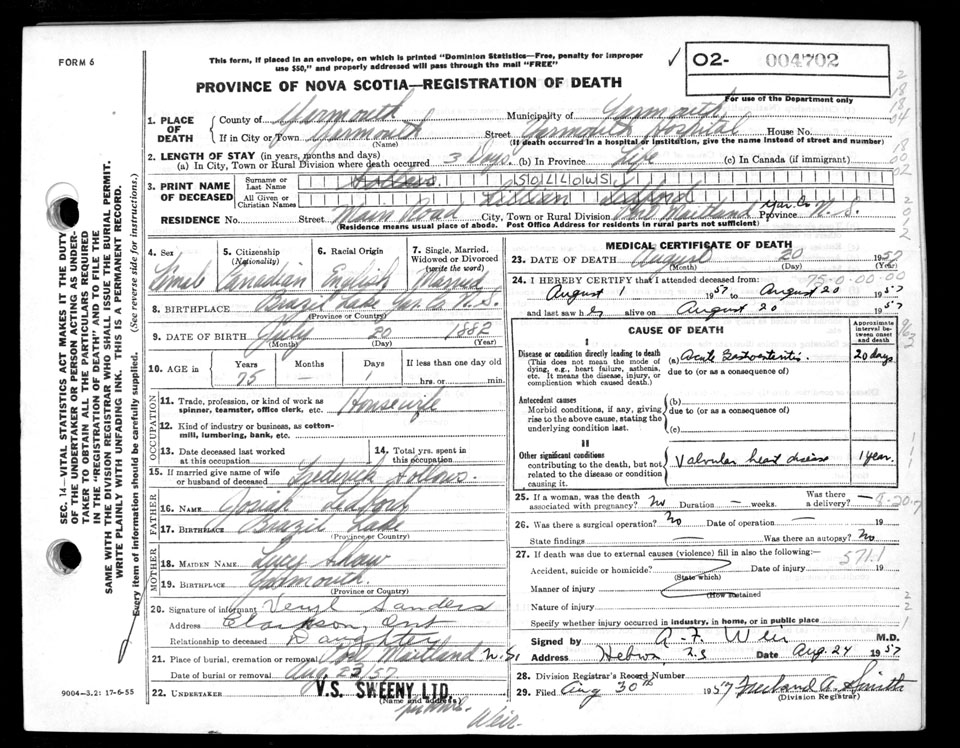 FORM 6
This form, if placed in an envelope, on which is printed "Dominion Statistics—Free, penalty for improper
use $50," and properly addressed will pass through the mail "FREE"
PROVINCE OF NOVA SCOTIA—REGISTRATION OF DEATH
✓
02- 004702
For use of the Department only
SEC. 14—VITAL STATISTICS ACT MAKES IT THE DUTY
OF THE UNDERTAKER OR PERSON ACTING AS UNDER-
TAKER TO OBTAIN ALL THE PARTICULARS REQUIRED
IN THE "REGISTRATION OF DEATH" AND TO FILE THE
SAME WITH THE DIVISION REGISTRAR WHO SHALL ISSUE THE BURIAL PERMIT.
WRITE PLAINLY WITH UNFADING INK. THIS IS A PERMANENT RECORD.
Every item of information should be carefully supplied. (See reverse side for instructions.)
1. PLACE OF DEATH
County of Yarmouth Municipality of Yarmouth
If in City or Town Yarmouth Street Yarmouth Hospital House No.
(Name) (If death occurred in a hospital or institution, give the name instead of street and number)
2. LENGTH OF STAY (in years, months and days)
(a) In City, Town or Rural Division where death occurred 3 Days. (b) In Province Life (c) In Canada (if immigrant)
3. PRINT NAME OF DECEASED
Surname or Last Name SOLLOWS
All Given or Christian Names Lillian Ledford
RESIDENCE No. Street Main Road City, Town or Rural Division Port Maitland Yar. Co Province N.S.
(Residence means usual place of abode. Post Office Address for residents in rural parts not sufficient)
4. Sex Female
5. Citizenship (Nationality) Canadian
6. Racial Origin English
7. Single, Married, Widowed or Divorced (write the word) Married
8. BIRTHPLACE Brazil Lake Yar. Co. N.S.
(Province or Country)
9. DATE OF BIRTH July 20 1882
(Month) (Day) (Year)
10. AGE in Years Months Days If less than one day old
75 — 1 hrs. or min.
OCCUPATION
11. Trade, profession, or kind of work as
spinner, teamster, office clerk, etc. Housewife
12. Kind of industry or business, as cotton-
mill, lumbering, bank, etc.
13. Date deceased last worked at this occupation
14. Total yrs. spent in this occupation
15. If married give name of wife
or husband of deceased Frederick Sollows.
FATHER
16. NAME Josiah Ledford
17. BIRTHPLACE Brazil Lake
(Province or Country)
MOTHER
18. MAIDEN NAME Lucy Shaw
19. BIRTHPLACE Yarmouth.
(Province or Country)
20. Signature of informant Veryl Sanders
Address Clarkson, Ont
Relationship to deceased Daughter
21. Place of burial, cremation or removal Port Maitland N.S.
Date of burial or removal Aug 23/57
22. UNDERTAKER V.S. SWEENY LTD.
(Name and address)
Weir
9004-3.2: 17-6-55
MEDICAL CERTIFICATE OF DEATH
23. DATE OF DEATH August 20 1957
(Month) (Day) (Year)
24. I HEREBY CERTIFY that I attended deceased from: 75-0-00.00
August 1 1957 to August 20 1957
and last saw her alive on August 20 1957
CAUSE OF DEATH
Approximate interval between onset and death
I
Disease or condition directly leading to death
(This does not mean the mode of
dying, e.g., heart failure, asthenia,
etc. It means the disease, injury, or
complication which caused death.)
(a) Acute Gastroenteritis. 20 days
due to (or as a consequence of)
Antecedent causes
Morbid conditions, if any, giving
rise to the above cause, stating the
underlying condition last.
(b)
due to (or as a consequence of)
(c)
II
Other significant conditions
contributing to the death, but not
related to the disease or condition
causing it.
Valvular heart disease 1 year.
25. If a woman, was the death associated with pregnancy? No Duration — weeks. Was there a delivery? — 8-20-7
26. Was there a surgical operation? No Date of operation — 19
State findings — Was there an autopsy? No
27. If death was due to external causes (violence) fill in also the following:—
571.1
Accident, suicide or homicide? Date of injury 19
(State which)
Manner of injury
(How sustained
Nature of injury
Specify whether injury occurred in industry, in home, or in public place
Signed by A. F. Weir M.D.
Address Hebron, N.S Date Aug. 24 1957
28. Division Registrar's Record Number
29. Filed Aug 30th 1957 Freeland A. Smith
(Division Registrar)